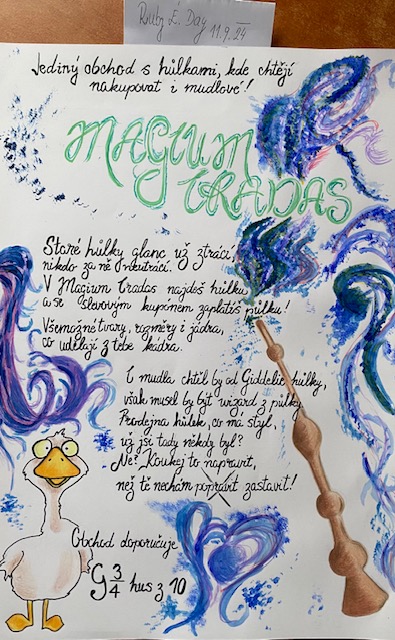 Ruby L. Day 11.9.24
Jediný obchod s hůlkami, kde chtějí
nakupovat i mudlové!
MAGIUM
TRADAS
Staré hůlky glanc už ztrácí,
nikdo za ně neutrácí.
V Magium Tradas najdeš hůlku
a se slevovým kupónem zaplatíš půlku!
Všemožné tvary, rozměry i jádra,
co udělají z tebe kádra.
I mudla chtěl by od Giddelie hůlky,
však musel by být wizard z půlky.
Prodejna hůlek, co má styl,
už jsi tady někdy byl?
Ne? Koukej to napravit,
než tě nechám popravit zastavit!
Obchod doporučuje
9 3/4 hus z 10